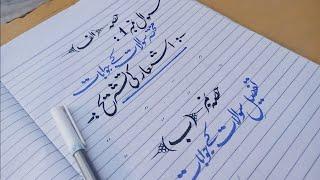 حصہ (الف)
سوال نمبر 1:
مختصر سوالات کے جوابات
اشعار کی تشریح:
حصہ نمبر (ب)
تفصیلی سوالات کے جوابات